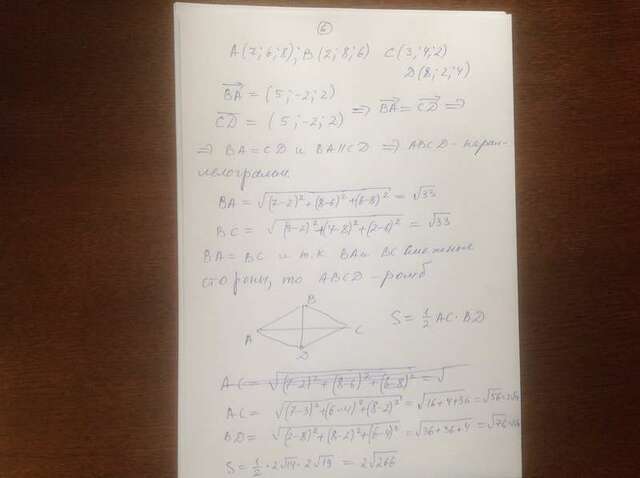 6
A(7;6;8); B(2;8;6) C(3;4;2)
D(8;2;4)
BA = (5;-2;2)
CD = (5;-2;2) ⇒ BA = CD ⇒
⇒ BA=CD и BA∥CD ⇒ ABCD - парал-
лелограмм
BA = √((7-2)²+(8-6)²+(6-8)²) = √33
BC = √((3-2)²+(4-8)²+(2-6)²) = √33
BA=BC и т.к BA и BC смежные
стороны, то ABCD - ромб
B
A C
D
S = 1/2 AC·BD
AC = √((7-2)²+(8-6)²+(6-8)²) = √
AC = √((7-3)²+(6-4)²+(8-2)²) = √16+4+36 = √56=2√14
BD = √((2-8)²+(8-2)²+(6-4)²) = √36+36+4 = √76
S = 1/2 · 2√14 · 2√19 = 2√266